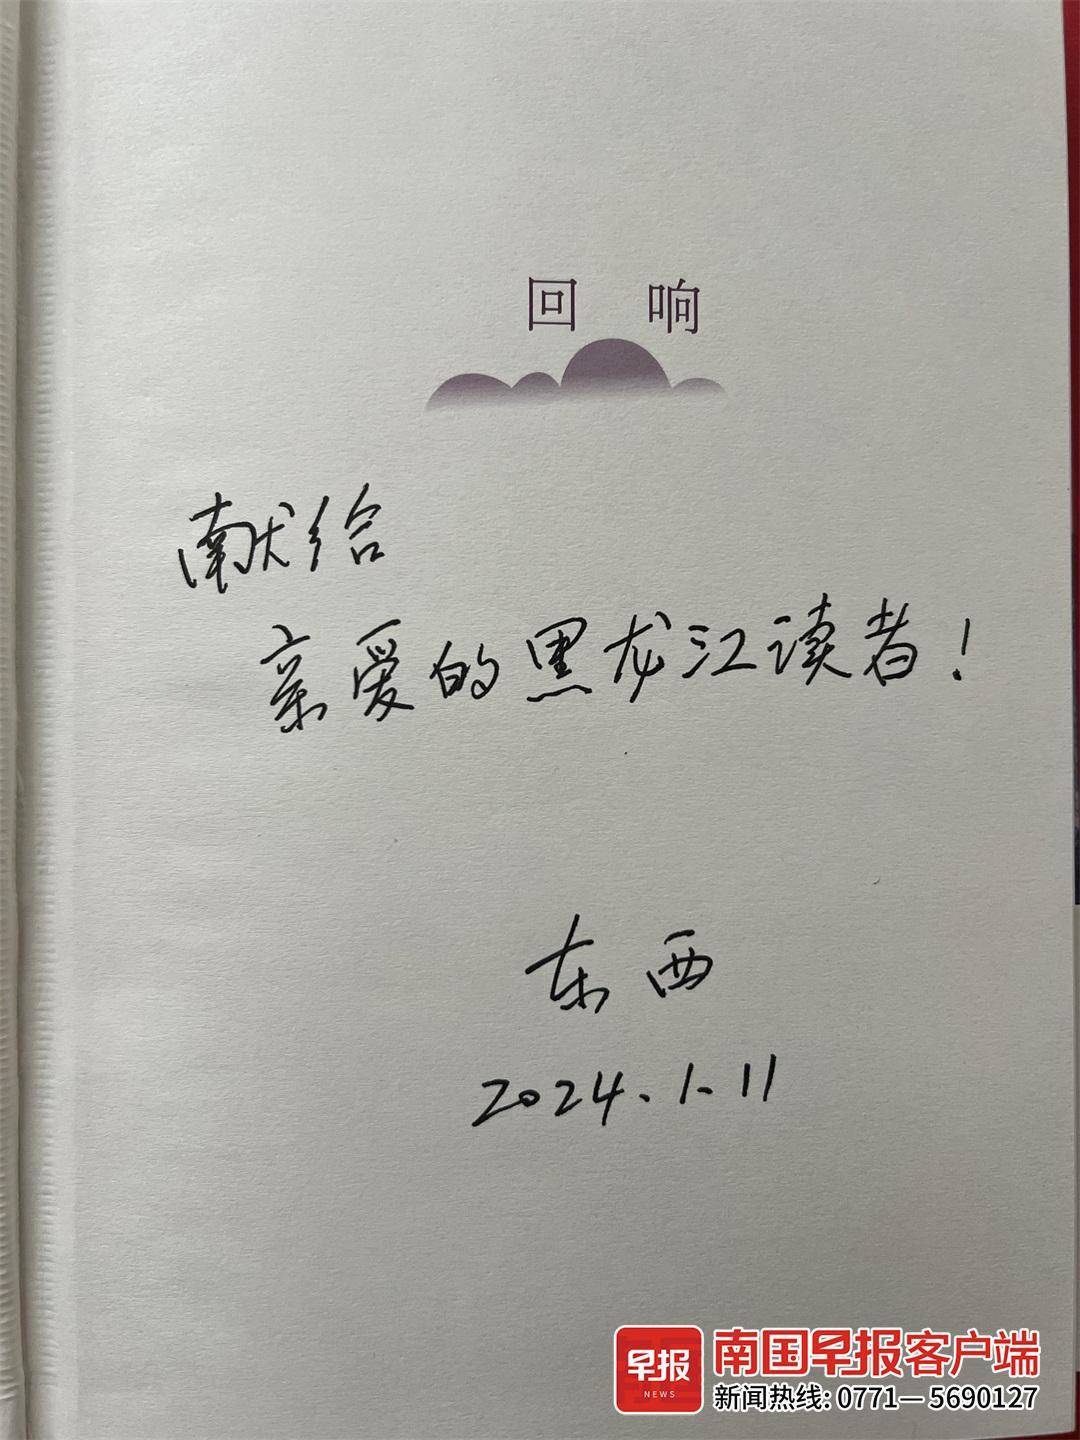 回响
献给
亲爱的黑龙江读者!
东西
2024.1.11
早报
NEWS
南国早报客户端
新闻热线:0771—5690127